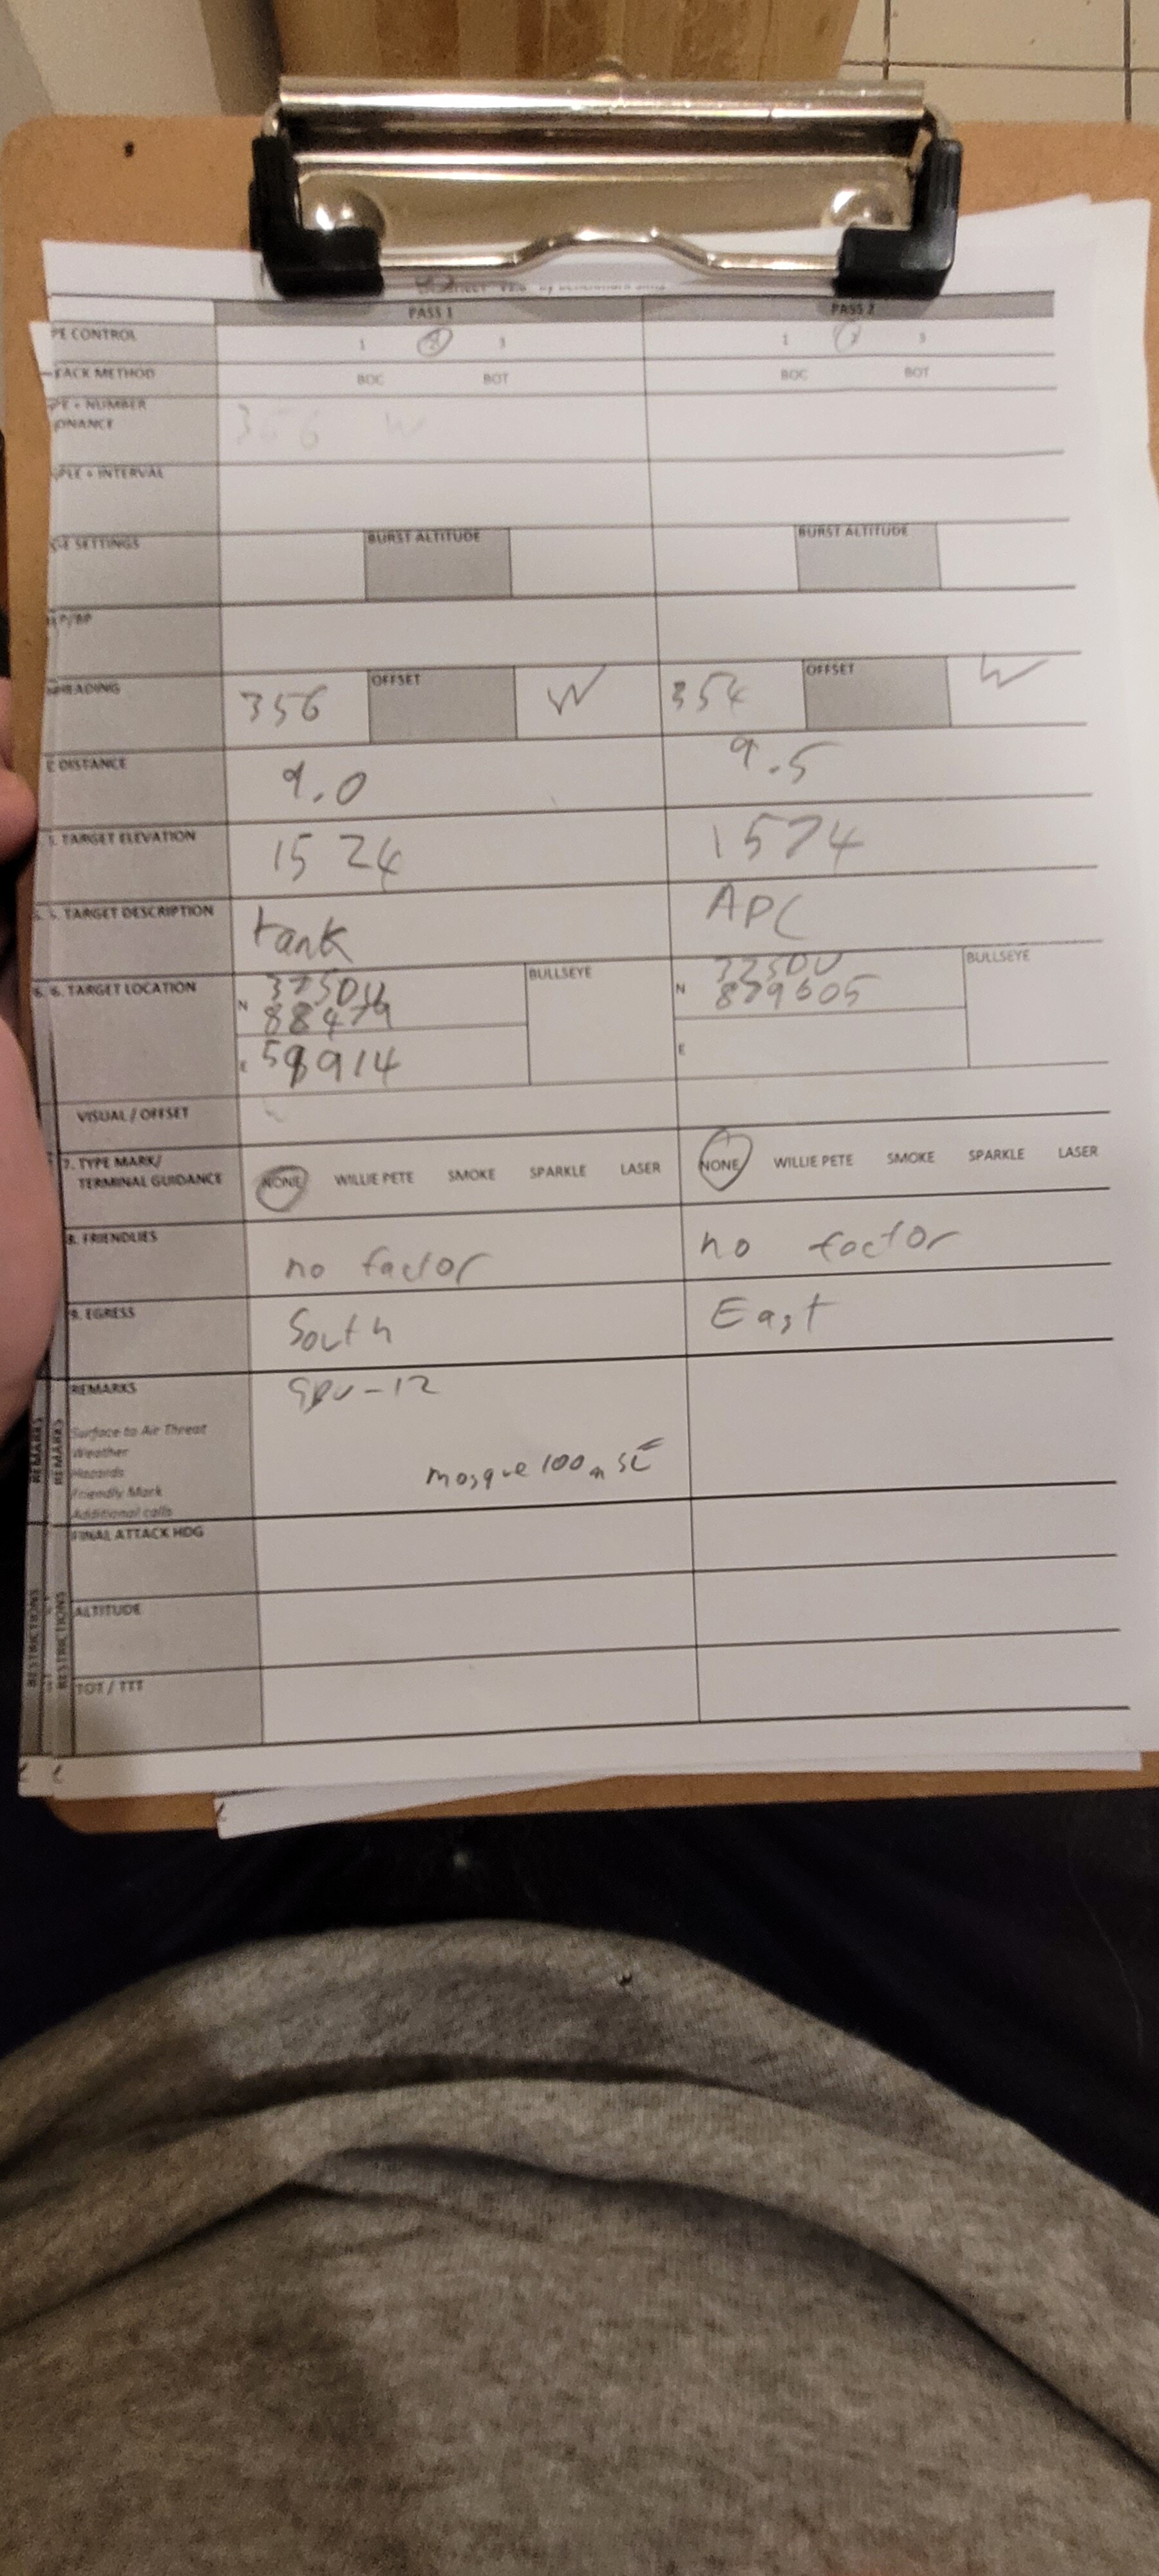 PASS 1 PASS 2
PE CONTROL 1 2 3 1 2 3
ACK METHOD BOC BOT BOC BOT
PE + NUMBER
ONANCE 356 W
PLE + INTERVAL
SETTINGS BURST ALTITUDE BURST ALTITUDE
P/BP
HEADING 356 OFFSET W 354 OFFSET W
DISTANCE 9.0 9.5
5. TARGET ELEVATION 1524 1574
5. TARGET DESCRIPTION tank APC
6. 6. TARGET LOCATION N 37SDU BULLSEYE N 37SDU BULLSEYE
88479 879605
E 58914 E
VISUAL / OFFSET
7. TYPE MARK/ NONE WILLIE PETE SMOKE SPARKLE LASER NONE WILLIE PETE SMOKE SPARKLE LASER
TERMINAL GUIDANCE
8. FRIENDLIES no factor no factor
9. EGRESS South East
REMARKS GBU-12
Surface to Air Threat
Weather
Hazards mosque 100m SE
Friendly Mark
Additional calls
REMARKS
REMARKS
FINAL ATTACK HDG
ALTITUDE
TOT / TTT
RESTRICTIONS
RESTRICTIONS